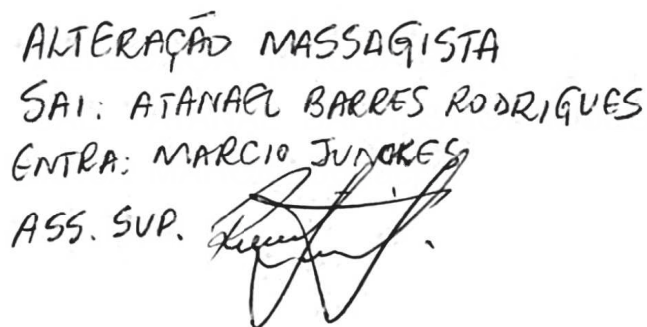 ALTERAÇÃO MASSAGISTA
SAI: ATANAEL BARRES RODRIGUES
ENTRA: MARCIO JUNCKES
ASS. SUP.